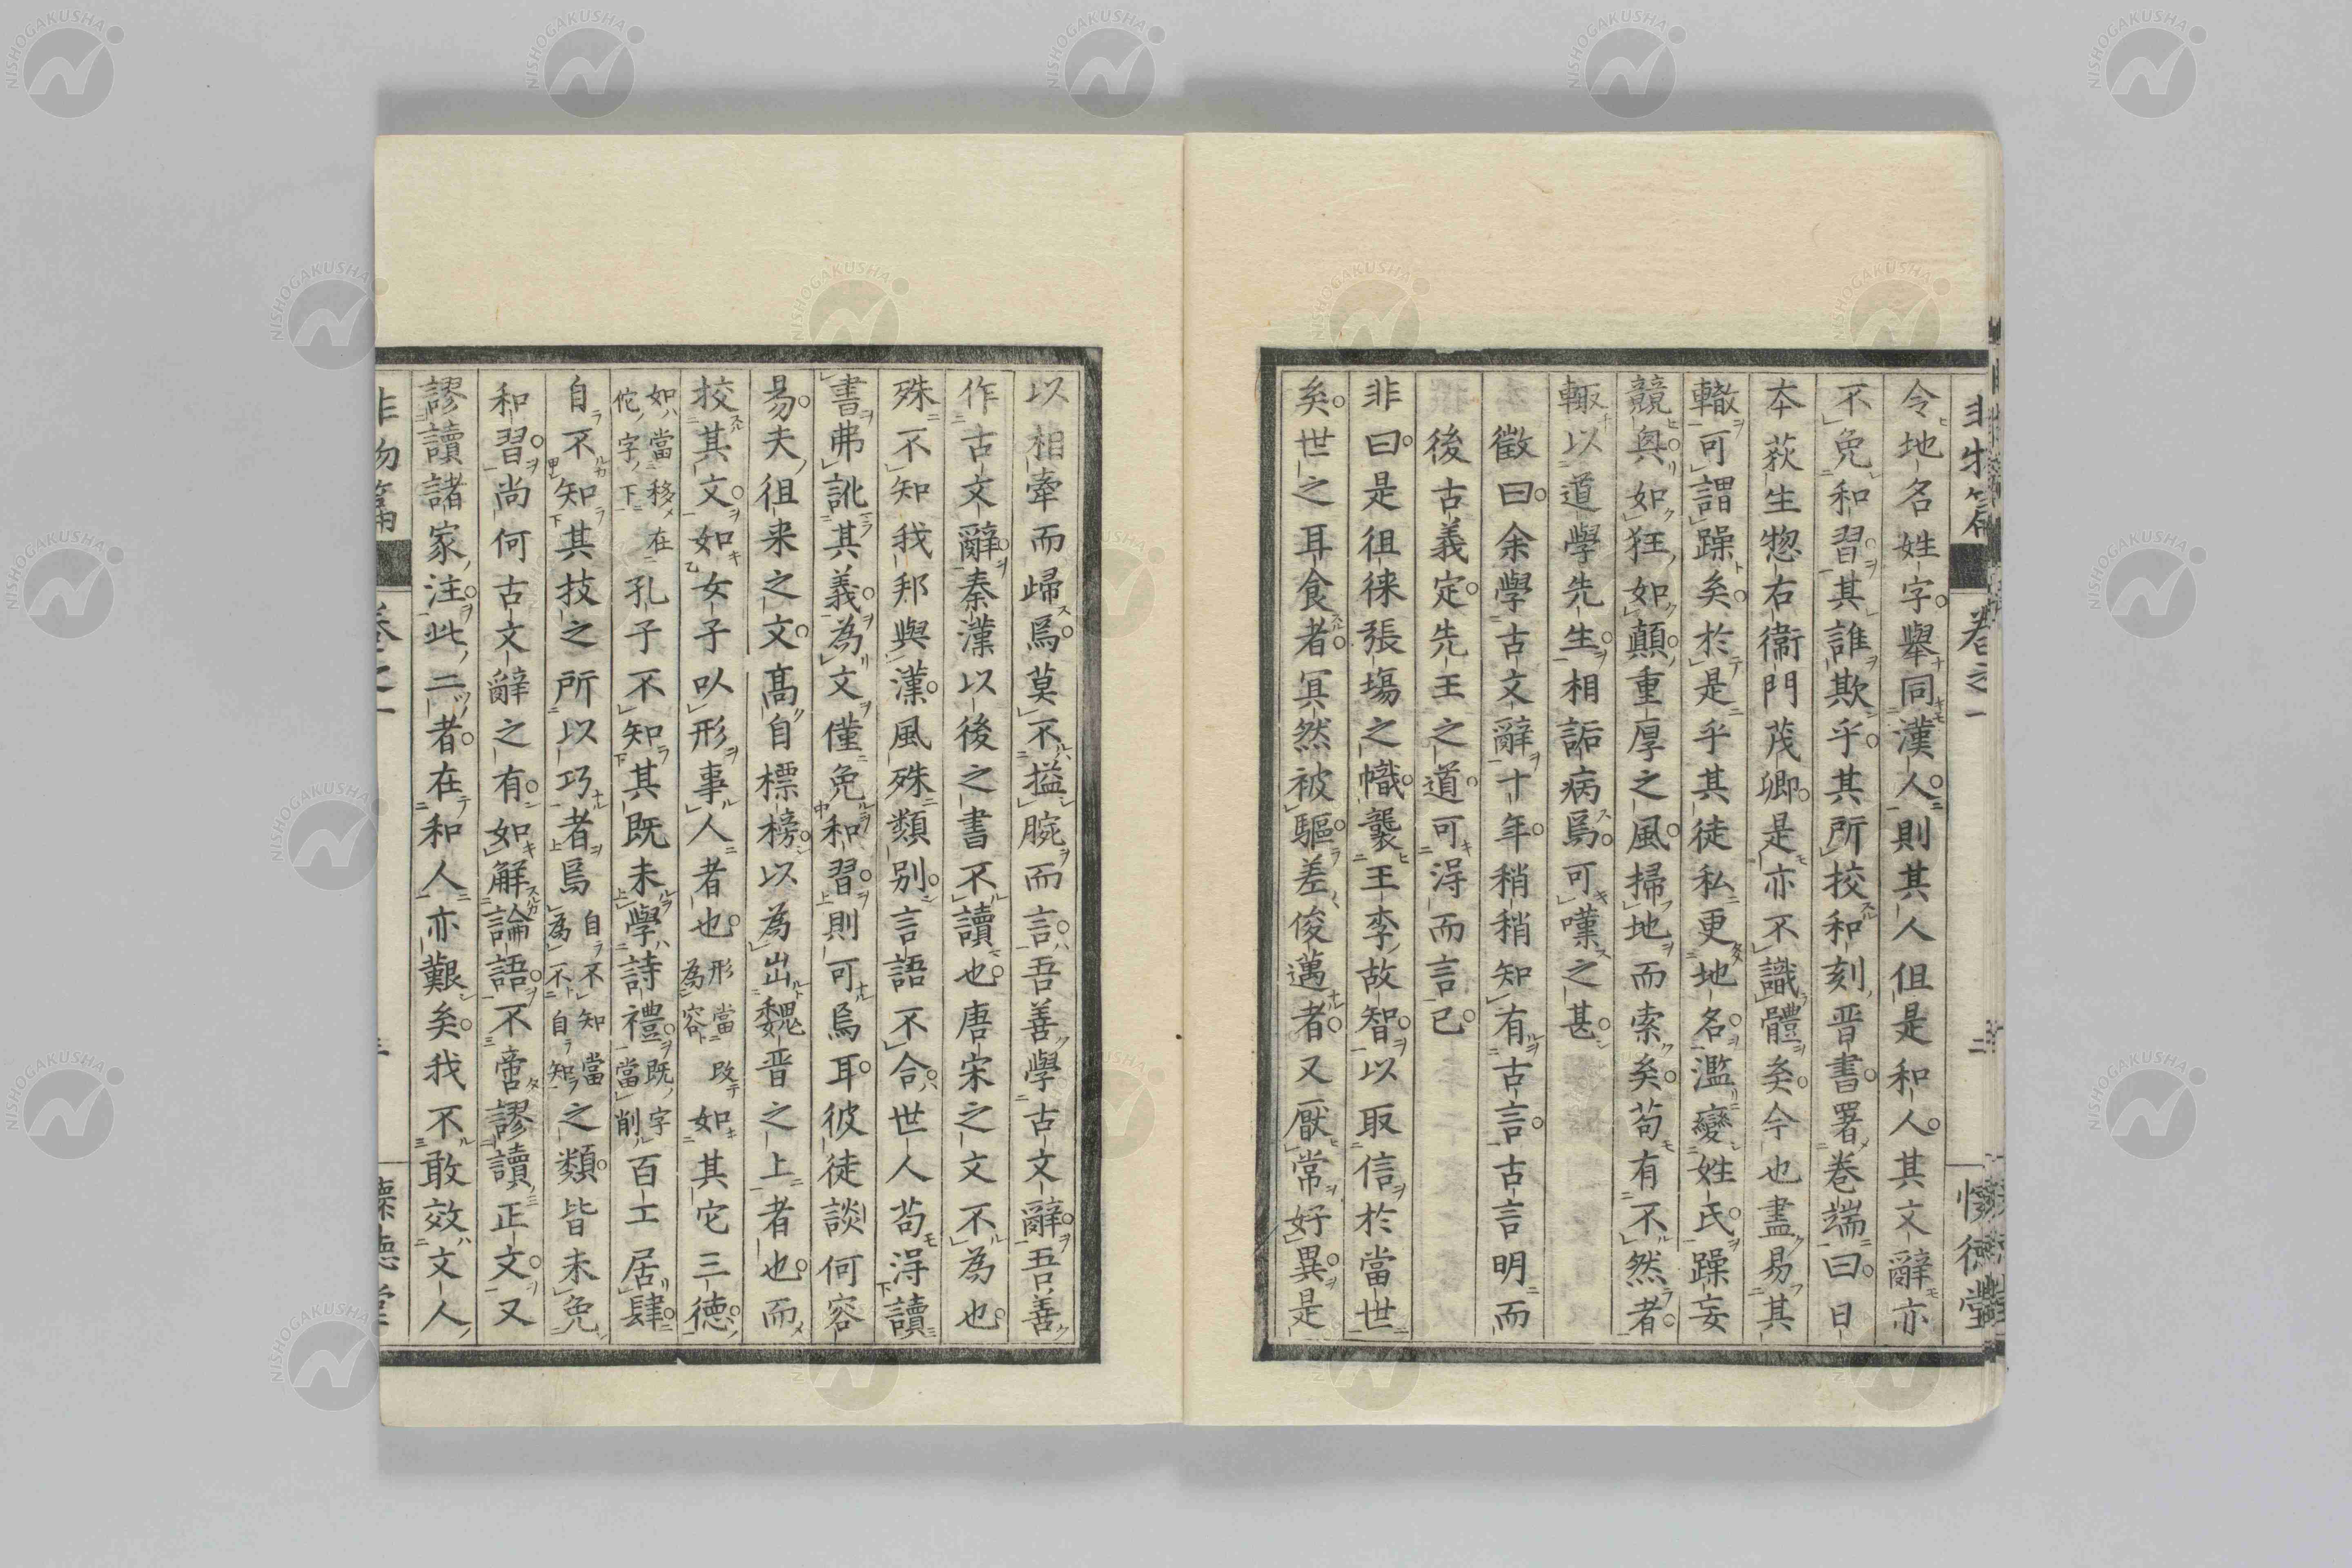 非物篇 卷之一 二 懷德堂
令地名姓字擧同漢人則其人但是和人其文辭亦
不免和習其誰欺乎其所挍和刻晋書署卷端曰日
本荻生惣右衞門茂卿是亦不識體矣今也盡易其
轍可謂躁矣於是乎其徒私更地名濫變姓氏躁妄
競與如狂如顛重厚之風掃地而索矣苟有不然者
輙以道學先生相詬病焉可嘆之甚
徵曰余學古文辭十年稍稍知有古言古言明而
後古義定先王之道可淂而言已
非曰是徂徠張塲之幟襲王李故智以取信於當世
矣世之耳食者冥然被驅差俊邁者又厭常好異是
以相牽而歸焉莫不搤腕而言吾善學古文辭吾善
作古文辭秦漢以後之書不讀也唐宋之文不為也
殊不知我邦與漢風殊類别言語不合世人苟淂讀
書弗訛其義為文僅免和習則可焉耳彼徒談何容
易夫徂来之文髙自標榜以為出魏晋之上者也而
挍其文如女子以形事人者也形當改為容如其它三德
如當移在佗字下孔子不知其既未學詩禮既字當削百工居肆
自不知其技之所以巧者焉自不知當為不自知之類皆未免
和習尚何古文辭之有如解論語不啻謬讀正文又
謬讀諸家注此二者在和人亦艱矣我不敢效文人
非物篇 卷之一 三 懷德堂